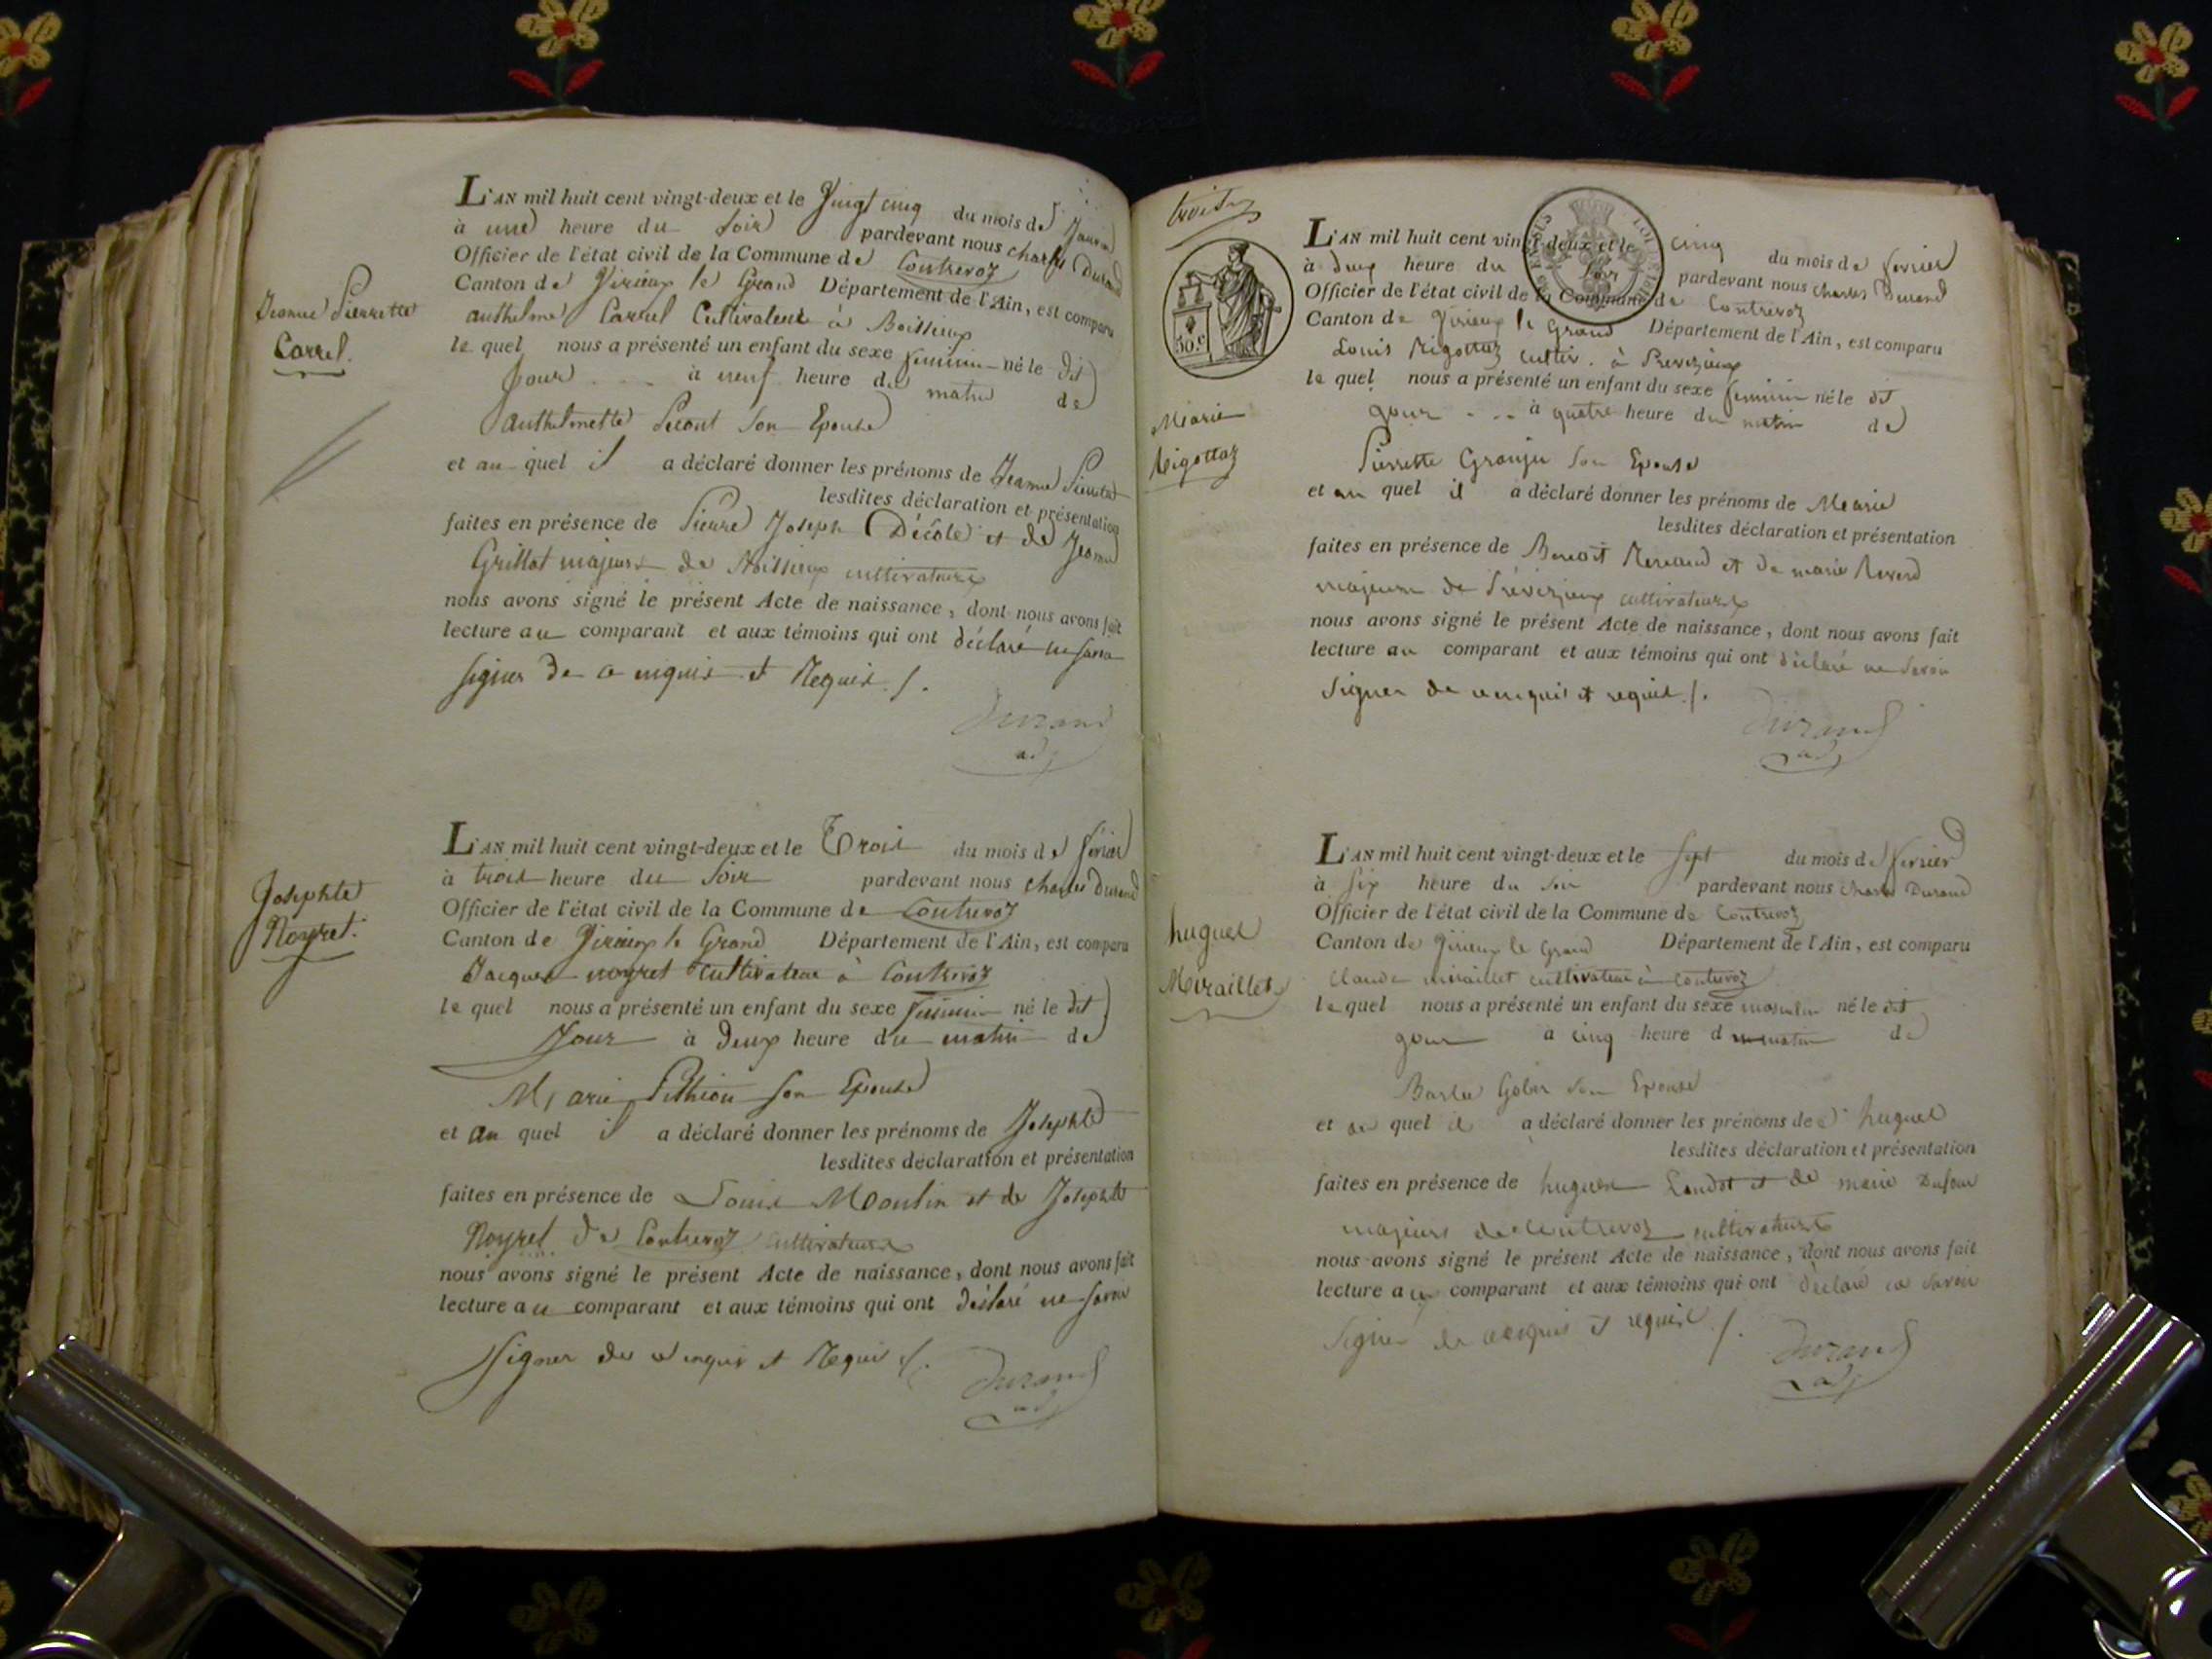 Jeanne Pierrette
Carrel.
L'AN mil huit cent vingt-deux et le Vingt cinq du mois de Janvier
à une heure du Soir pardevant nous charles Durand
Officier de l'état civil de la Commune de Contrevoz
Canton de Virieux le Grand Département de l'Ain, est comparu
anthelme Carrel Cultivateur à Boissieux
le quel nous a présenté un enfant du sexe feminin né le dit
Jour à neuf heure du matin de
Anthelmette Son Epouse
et au quel il a déclaré donner les prénoms de Jeanne Pierrette
lesdites déclaration et présentation
faites en présence de Pierre Joseph Décôle et de Jeanne
Grillot majeurs de Boissieux cultivateurs
nous avons signé le présent Acte de naissance, dont nous avons fait
lecture au comparant et aux témoins qui ont déclaré ne savoir
signer de ce enquis et Requis ./.
Durand
adj
Josephte
Noyret.
L'AN mil huit cent vingt-deux et le Trois du mois de février
à trois heure du Soir pardevant nous charles Durand
Officier de l'état civil de la Commune de Contrevoz
Canton de Virieux le Grand Département de l'Ain, est comparu
Jacques noyret cultivateur à Contrevoz
le quel nous a présenté un enfant du sexe feminin né le dit
Jour à Deux heure du matin de
Marie Pithion son Epouse
et au quel il a déclaré donner les prénoms de Josephte
lesdites déclaration et présentation
faites en présence de Louis Moulin et de Josephte
Noyret de Contrevoz cultivateurs
nous avons signé le présent Acte de naissance, dont nous avons fait
lecture au comparant et aux témoins qui ont déclaré ne savoir
signer de ce enquis et Requis ./.
Durand
adj
30 c
Marie
Rigottaz
L'AN mil huit cent vingt-deux et le cinq du mois de fevrier
à deux heure du Soir pardevant nous charles Durand
Officier de l'état civil de la Commune de Contrevoz
Canton de Virieux le Grand Département de l'Ain, est comparu
Louis Rigottaz cultiv. à Prevezieux
le quel nous a présenté un enfant du sexe feminin né le dit
jour à quatre heure du matin de
Pierrette Granju son Epouse
et au quel il a déclaré donner les prénoms de Marie
lesdites déclaration et présentation
faites en présence de Benoit et de marie
majeurs de Prévezieux cultivateurs
nous avons signé le présent Acte de naissance, dont nous avons fait
lecture au comparant et aux témoins qui ont déclaré ne savoir
signer de ce enquis et requis ./.
Durand
adj
hugues
Miraillet
L'AN mil huit cent vingt-deux et le sept du mois de fevrier
à six heure du soir pardevant nous charles Durand
Officier de l'état civil de la Commune de Contrevoz
Canton de Virieux le Grand Département de l'Ain, est comparu
Claude miraillet cultivateur à Contrevoz
le quel nous a présenté un enfant du sexe masculin né le dit
jour à cinq heure du matin de
Golin son Epouse
et au quel il a déclaré donner les prénoms de hugues
lesdites déclaration et présentation
faites en présence de hugues Landot et de marie Dufour
majeurs de Contrevoz cultivateurs
nous avons signé le présent Acte de naissance, dont nous avons fait
lecture au comparant et aux témoins qui ont déclaré ne savoir
signer de ce enquis et requis ./.
Durand
adj